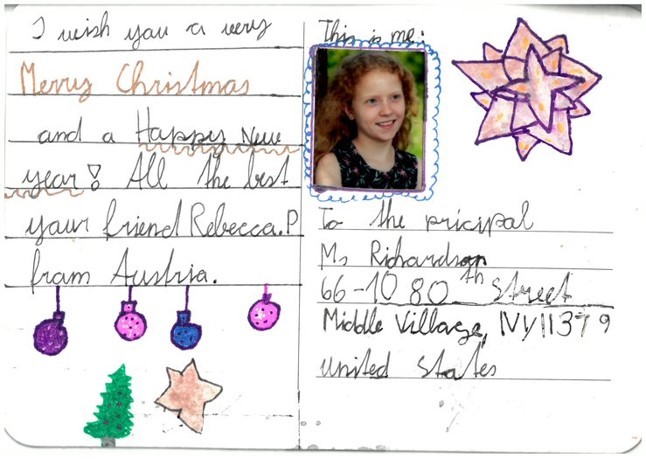 I wish you a very
Merry Christmas
and a Happy New
year! All the best
your friend Rebecca.P
from Austria.
This is me:
To the pricipal
Ms Richardson
66-10 80th Street
Middle Village, NY11379
united states